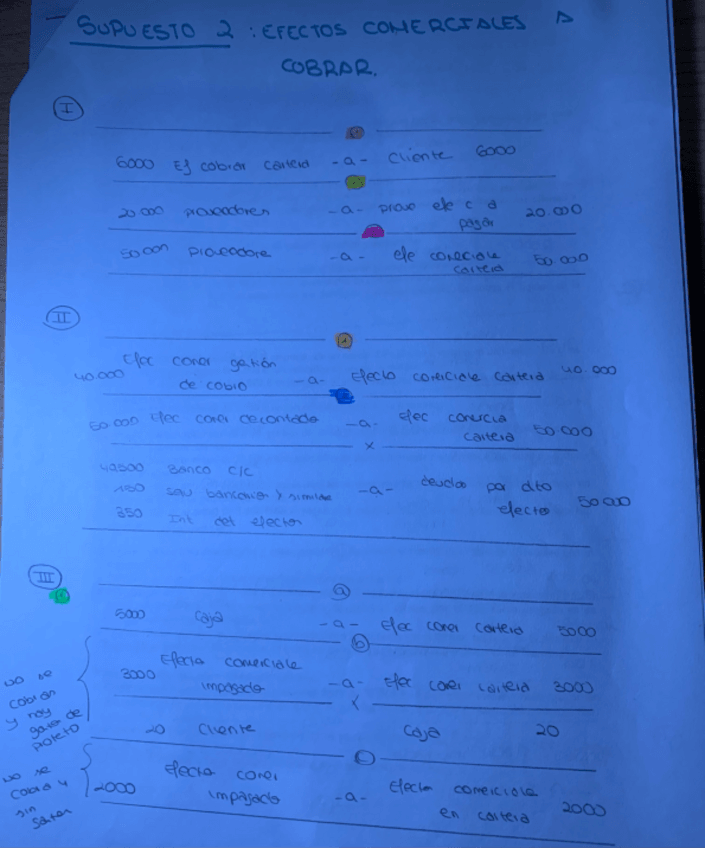 SUPUESTO 2 : EFECTOS COMERCIALES A
COBRAR.
I
6000 Ef cobrar cartera -a- Cliente 6000
20 000 proveedores -a- prove efe c a
pagar 20.000
50.000 proveedore -a- efe comerciale
cartera 50.000
II
a
40.000 Efec comer gestión
de cobro -a- Efecto comerciale cartera 40.000
50.000 Efec comer descontado -a- efec comercia
cartera 50.000
x
49500 Banco c/c
150 servi bancarios y similare -a- deudas por dto
efectos 50000
350 Int det efectos
III
a
5000 Caja -a- Efec comer cartera 5000
b
no se
cobran
y hay
gatos de
protesto
3000 Efecto comerciale
impagado -a- Efec comer cartera 3000
x
20 Cliente Caja 20
no se
cobra y
sin
gastos
2000 Efecto comer
impagado -a- Efecto comerciale
en cartera 2000